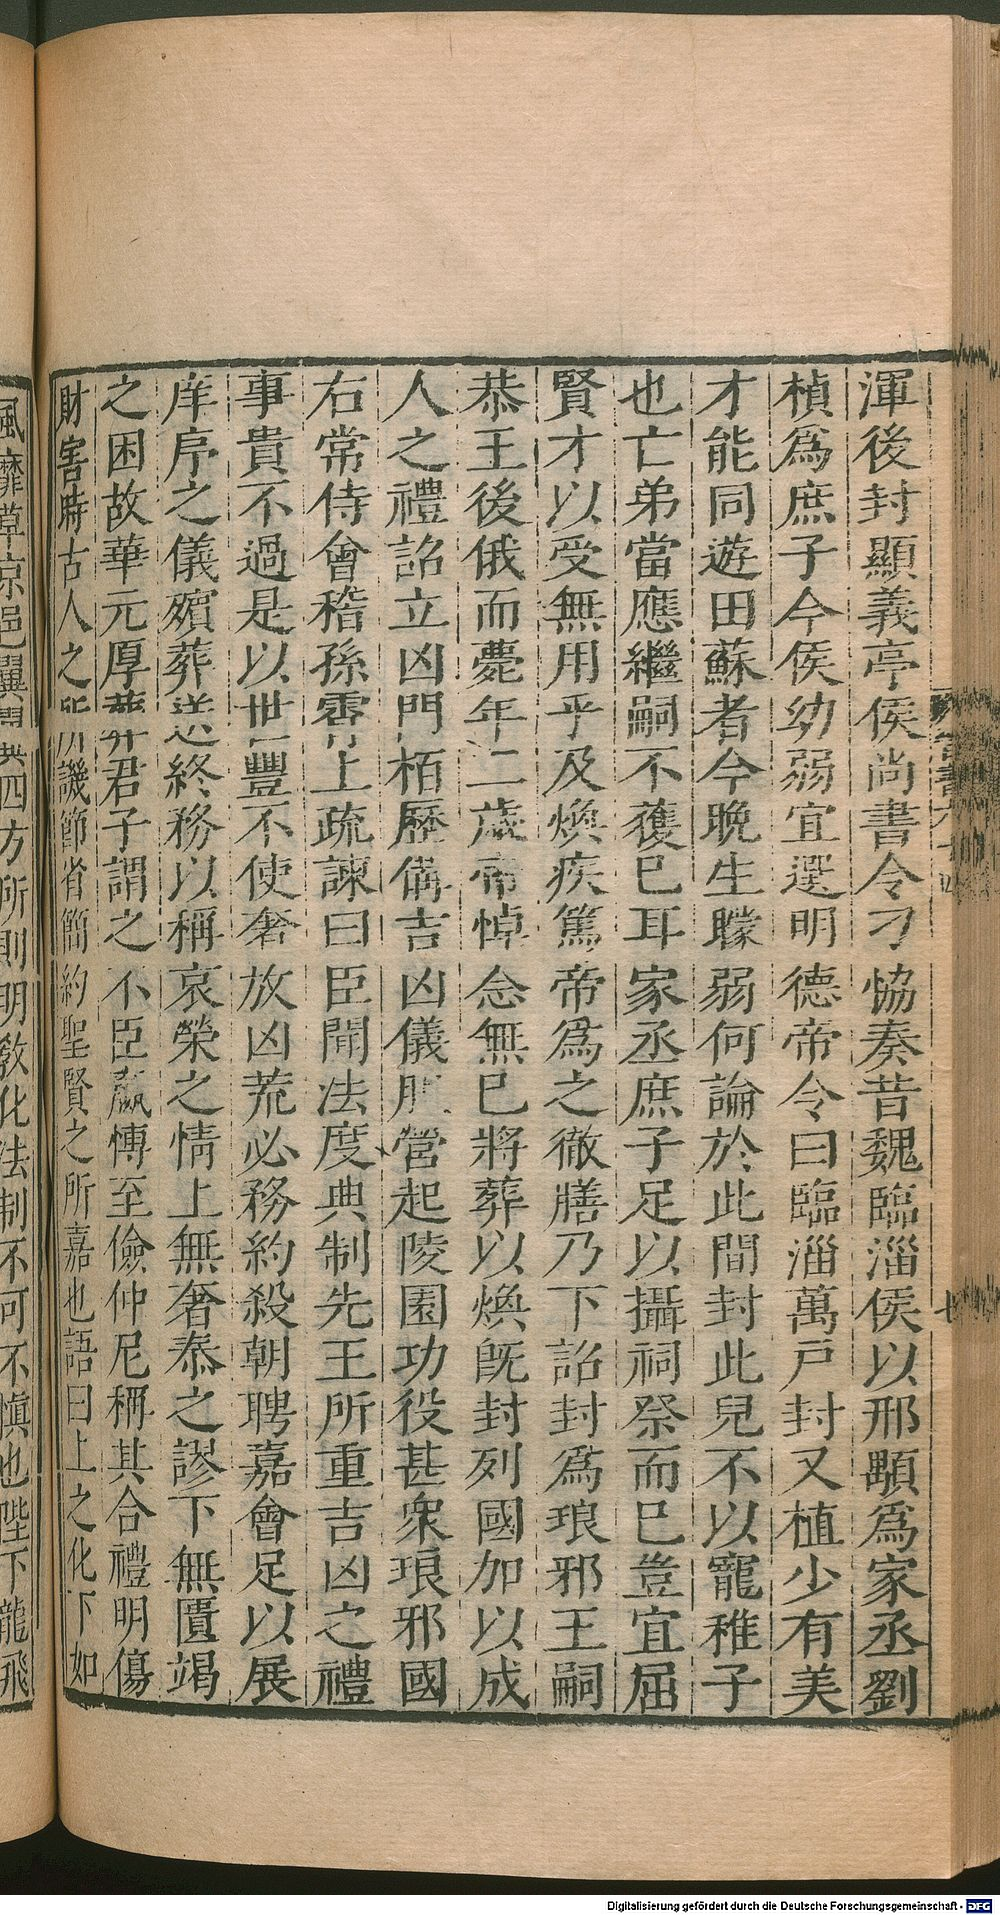 渾後封顯義亭侯尚書令刁恊奏昔魏臨淄侯以邢顒爲家丞劉
楨爲庶子今侯幼弱宜選明德帝令曰臨淄萬戸封又植少有美
才能同遊田蘇者今晚生矇弱何論於此間封此兒不以寵稚子
也亡弟當應繼嗣不獲已耳家丞庶子足以攝祠祭而已豈宜屈
賢才以受無用乎及煥疾篤帝爲之徹膳乃下詔封爲琅邪王嗣
恭王後俄而薨年二歲帝悼念無已將葬以煥旣封列國加以成
人之禮詔立凶門柏歷備吉凶儀服營起陵園功役甚衆琅邪國
右常侍會稽孫霄上疏諫曰臣聞法度典制先王所重吉凶之禮
事貴不過是以世豐不使奢放凶荒必務約殺朝聘嘉會足以展
庠序之儀殯葬送終務以稱哀榮之情上無奢泰之謬下無匱竭
之困故華元厚葬君子謂之不臣嬴慱至儉仲尼稱其合禮明傷
財害時古人之所譏節省簡約聖賢之所嘉也語曰上之化下如
風靡草京邑翼翼四方所則明敎化法制不可不愼也陛下龍飛
Digitalisierung gefördert durch die Deutsche Forschungsgemeinschaft - DFG